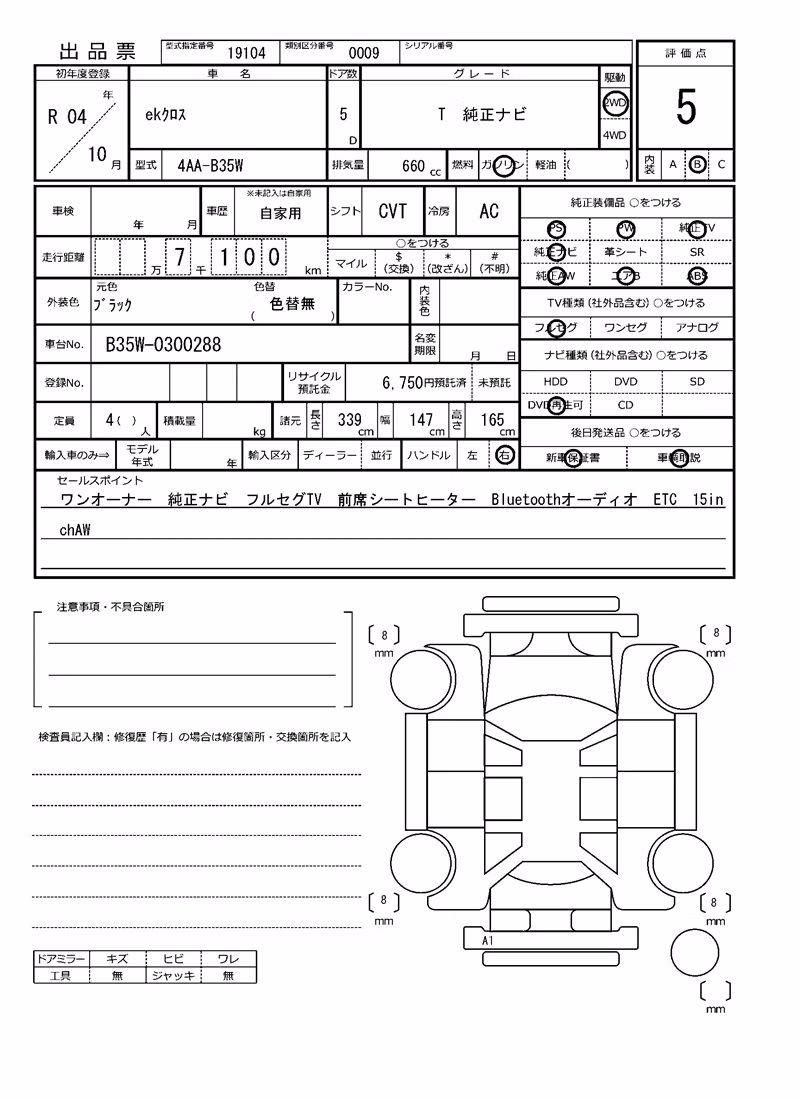 出品票 型式指定番号 19104 類別区分番号 0009 シリアル番号
評価点
5
内装 A B C
初年度登録 車名 ドア数 グレード 駆動
R 04 年 10 月
ekクロス
5 D
T 純正ナビ
2WD
4WD
型式 4AA-B35W 排気量 660 cc 燃料 ガソリン 軽油 ( )
車検 年 月 車歴 ※未記入は自家用 自家用 シフト CVT 冷房 AC
走行距離 万 7 千 1 0 0 km
○をつける
マイル $ (交換) * (改ざん) # (不明)
外装色 元色 ブラック 色替 ( 色替無 ) カラーNo. 内装色
車台No. B35W-0300288 名変期限 月 日
登録No. リサイクル預託金 6,750円預託済 未預託
定員 4( ) 人 積載量 kg 諸元 長さ 339 cm 幅 147 cm 高さ 165 cm
輸入車のみ⇒ モデル年式 年 輸入区分 ディーラー 並行 ハンドル 左 右
純正装備品 ○をつける
PS PW 純正TV
純正ナビ 革シート SR
純正AW エアB ABS
TV種類(社外品含む)○をつける
フルセグ ワンセグ アナログ
ナビ種類(社外品含む)○をつける
HDD DVD SD
DVD再生可 CD
後日発送品 ○をつける
新車保証書 車輌取説
セールスポイント
ワンオーナー 純正ナビ フルセグTV 前席シートヒーター Bluetoothオーディオ ETC 15in
chAW
注意事項・不具合箇所
検査員記入欄:修復歴「有」の場合は修復箇所・交換箇所を記入
8 mm
8 mm
8 mm
8 mm
A1
mm
ドアミラー キズ ヒビ ワレ
工具 無 ジャッキ 無